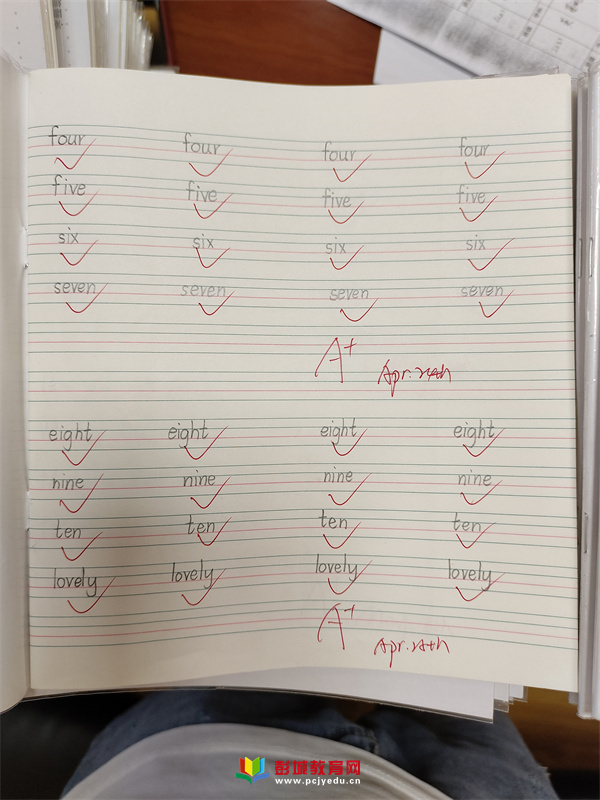 four four four four
five five five five
six six six six
seven seven seven seven
A+ Apr. 24th
eight eight eight eight
nine nine nine nine
ten ten ten ten
lovely lovely lovely lovely
A+ Apr.
彭城教育网
www.pcjyedu.cn